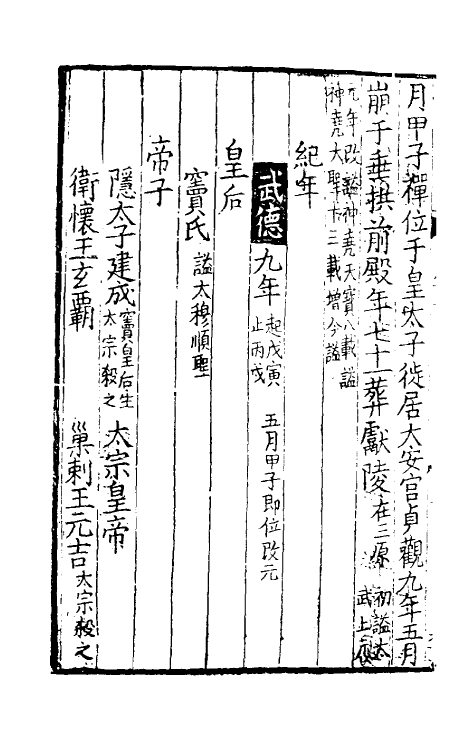 月甲子禪位于皇太子徙居大安宮貞觀九年五月
崩于垂拱前殿年七十一葬獻陵在三原 初謚太武上元
元年改謚神堯天寶八載謚神堯大聖十三載增今謚
紀年
武德九年起戊寅止丙戌 五月甲子即位改元
皇后
竇氏謚太穆順聖
帝子
隱太子建成竇皇后生太宗殺之 太宗皇帝
衛懷王玄霸 巢剌王元吉太宗殺之